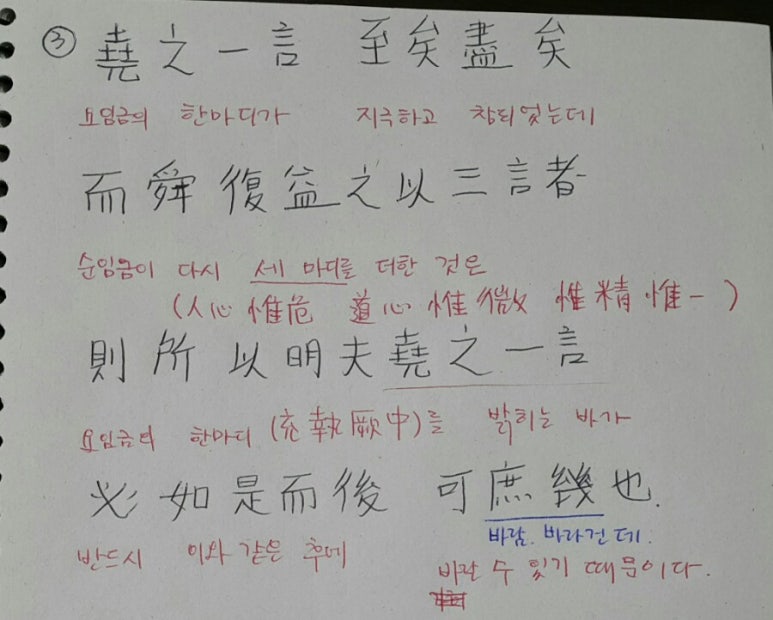 ③ 堯之一言 至矣盡矣
요임금의 한마디가 지극하고 참되었는데
而舜復益之以三言者
순임금이 다시 세 마디를 더한 것은
(人心惟危 道心惟微 惟精惟一)
則所以明夫堯之一言
요임금의 한마디 (允執厥中)를 밝히는 바가
必如是而後 可庶幾也.
바람. 바라건데.
반드시 이와 같은 후에 바랄 수 있기 때문이다.